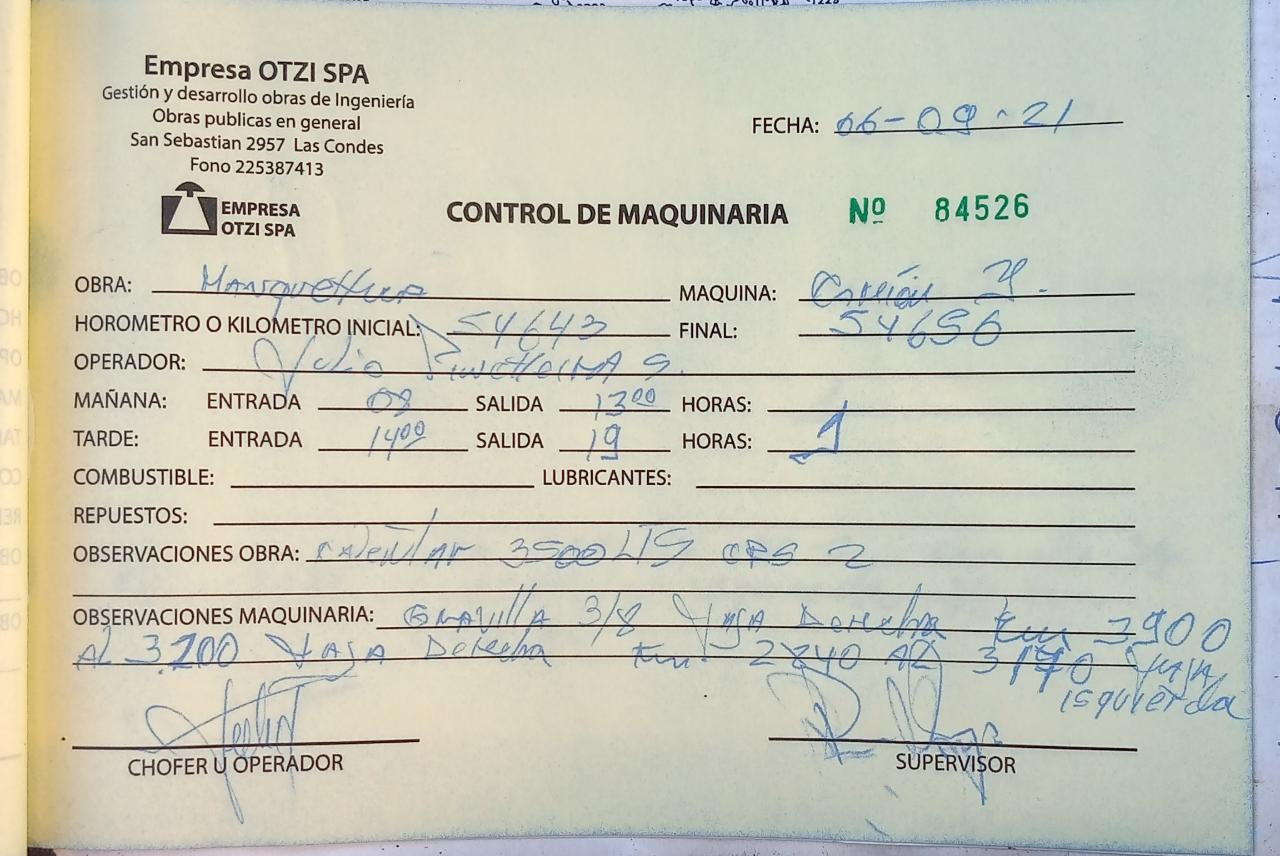 Empresa OTZI SPA
Gestión y desarrollo obras de Ingeniería
Obras publicas en general
San Sebastian 2957 Las Condes
Fono 225387413
EMPRESA
OTZI SPA
FECHA: 06-09-21
CONTROL DE MAQUINARIA Nº 84526
OBRA: MAQUINA: Camión
HOROMETRO O KILOMETRO INICIAL: 54643 FINAL: 54656
OPERADOR: Julio
MAÑANA: ENTRADA 08 SALIDA 13 00 HORAS:
TARDE: ENTRADA 14 00 SALIDA 19 HORAS:
COMBUSTIBLE: LUBRICANTES:
REPUESTOS:
OBSERVACIONES OBRA: Calentar 3500 LTS CRS 2
OBSERVACIONES MAQUINARIA: Gravilla 3/8 Derecha Km 3900
AL 3.200 Derecha Km. 2240 AL
isquierda
CHOFER U OPERADOR
SUPERVISOR